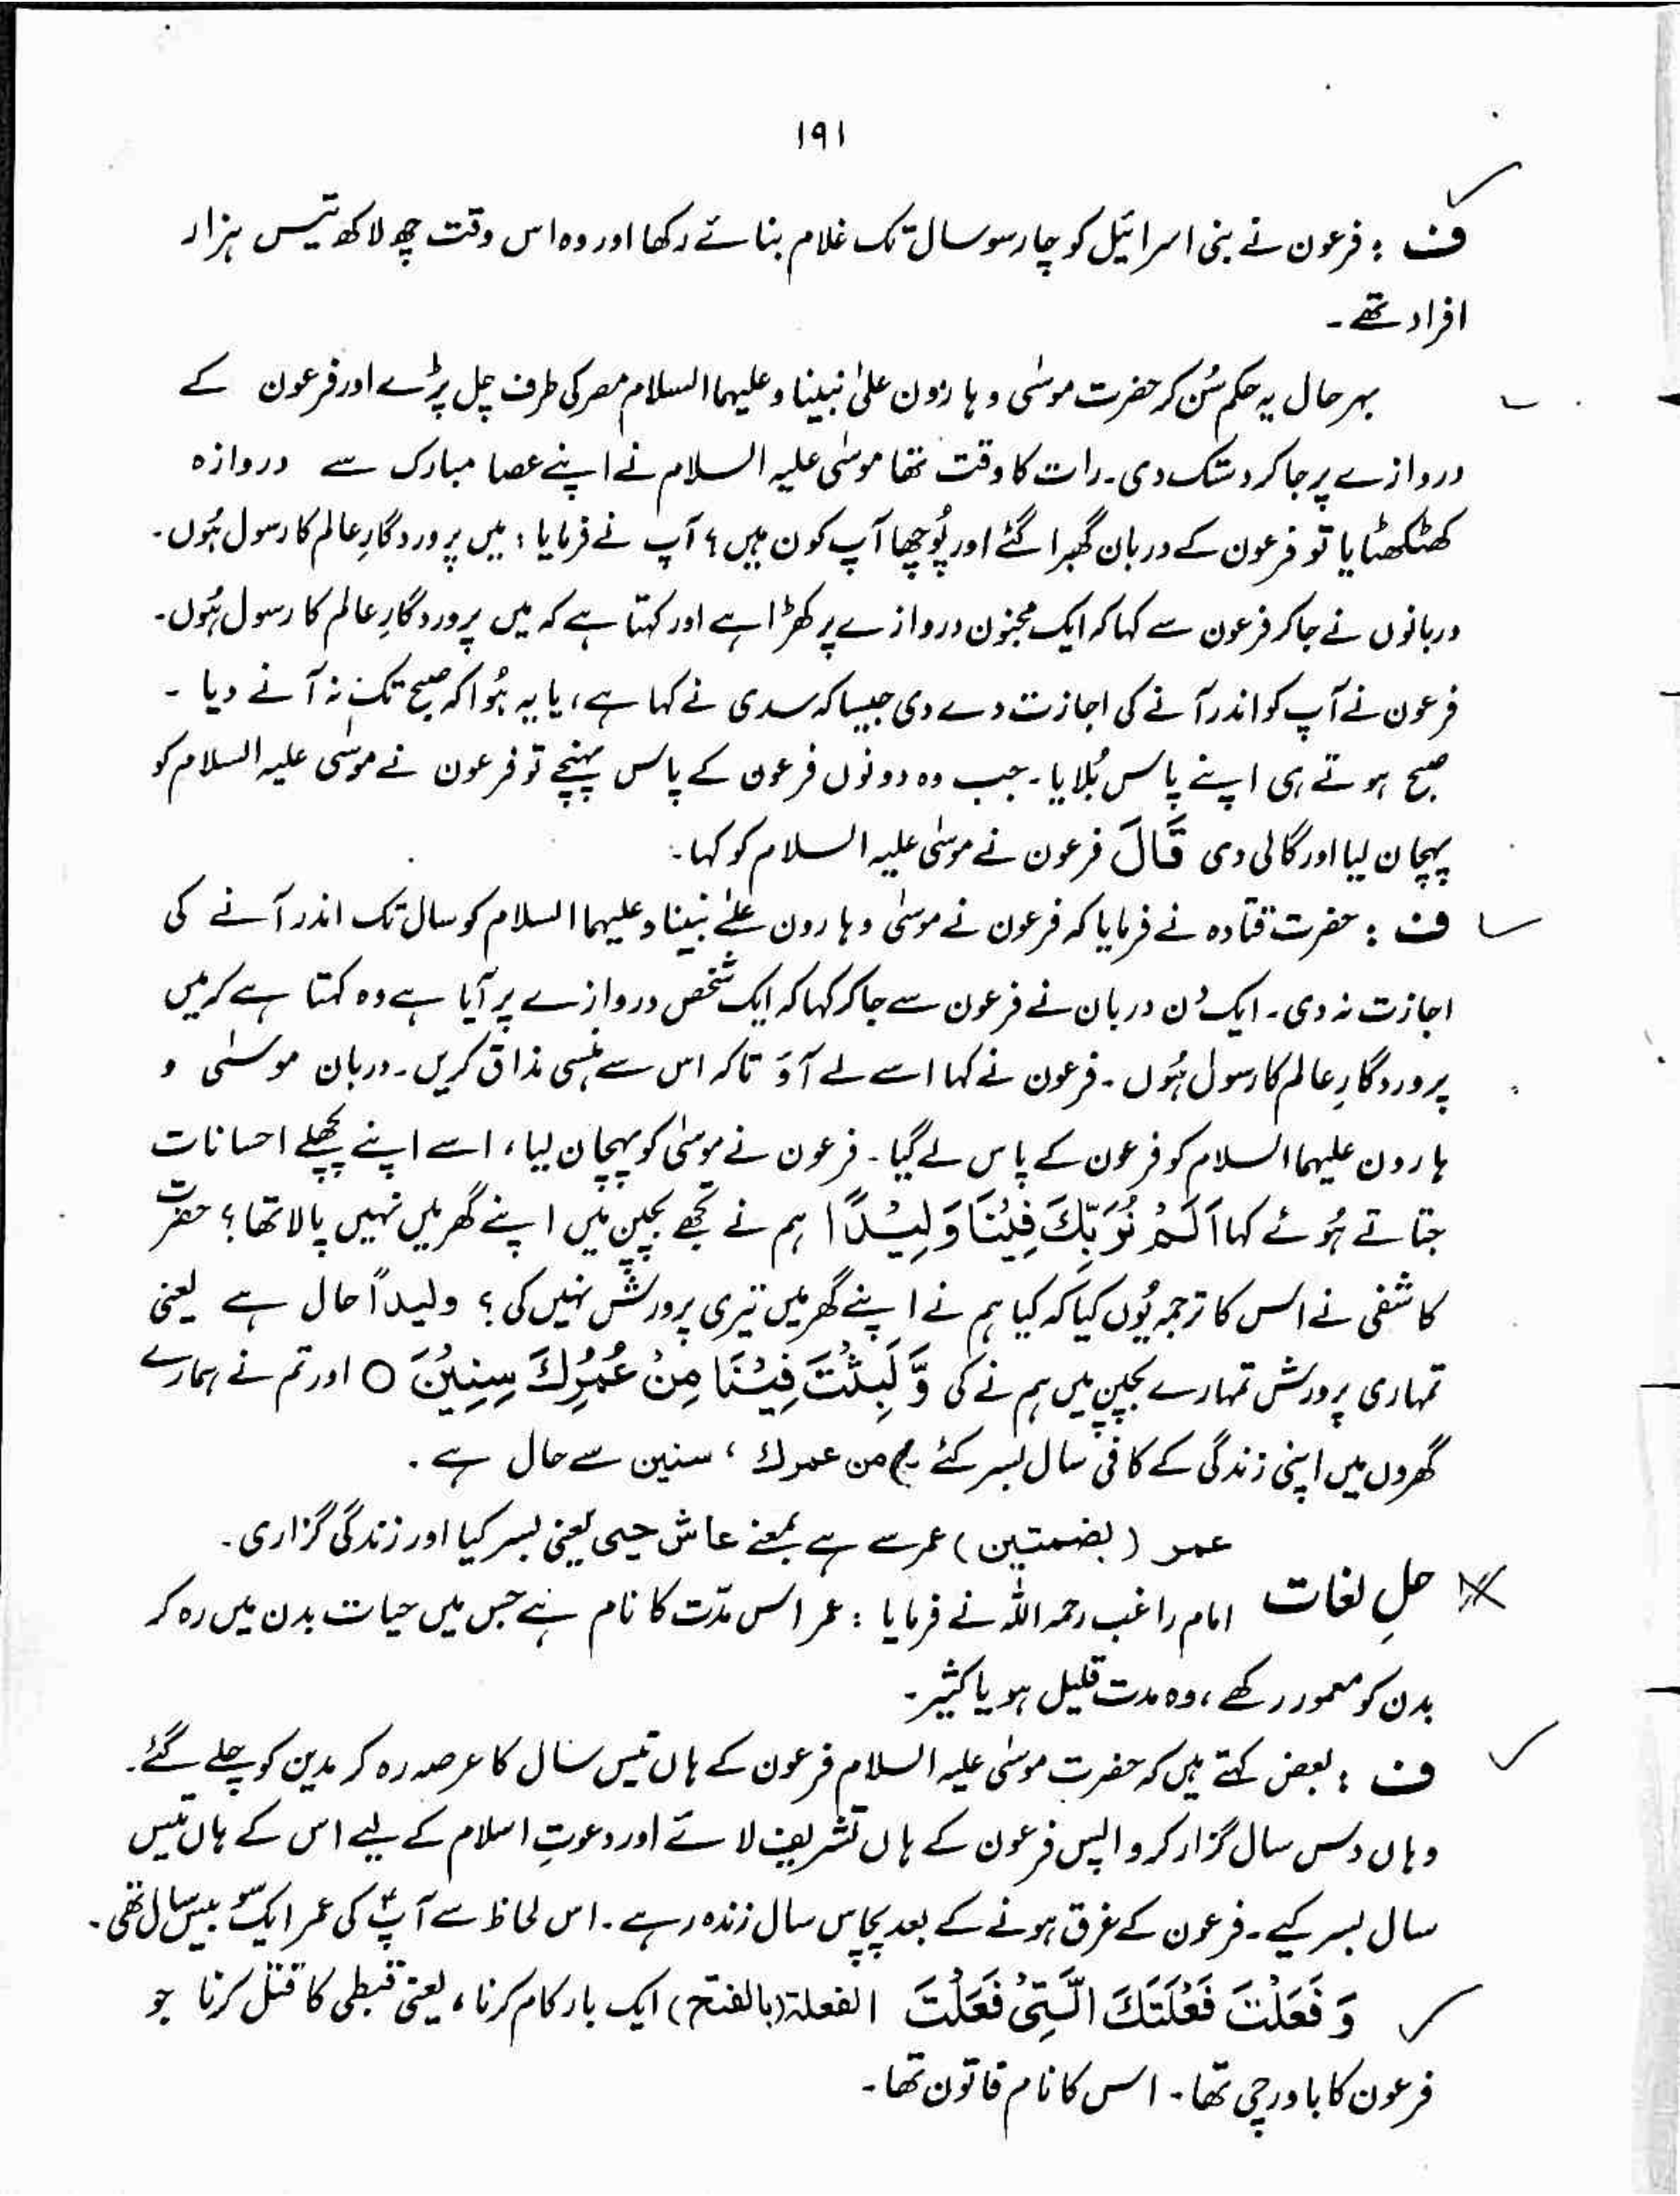 ۱۹۱
ف : فرعون نے بنی اسرائیل کو چار سو سال تک غلام بنائے رکھا اور وہ اس وقت چھ لاکھ تیس ہزار
افراد تھے۔
بہرحال یہ حکم سُن کر حضرت موسٰی و ہارون علیٰ نبینا وعلیہما السلام مصر کی طرف چل پڑے اور فرعون کے
دروازے پر جا کر دستک دی۔ رات کا وقت تھا موسٰی علیہ السلام نے اپنے عصا مبارک سے دروازہ
کھٹکھٹایا تو فرعون کے دربان گھبرا گئے اور پُوچھا آپ کون ہیں؟ آپ نے فرمایا : میں پروردگارِ عالم کا رسول ہُوں۔
دربانوں نے جا کر فرعون سے کہا کہ ایک مجنون دروازے پر کھڑا ہے اور کہتا ہے کہ میں پروردگارِ عالم کا رسول ہُوں۔
فرعون نے آپ کو اندر آنے کی اجازت دے دی جیسا کہ سدی نے کہا ہے، یا یہ ہُوا کہ صبح تک نہ آنے دیا ۔
صبح ہوتے ہی اپنے پاس بُلایا۔ جب وہ دونوں فرعون کے پاس پہنچے تو فرعون نے موسٰی علیہ السلام کو
پہچان لیا اور گالی دی قَالَ فرعون نے موسٰی علیہ السلام کو کہا۔
ف : حضرت قتادہ نے فرمایا کہ فرعون نے موسٰی و ہارون علےٰ نبینا وعلیہما السلام کو سال تک اندر آنے کی
اجازت نہ دی۔ ایک دن دربان نے فرعون سے جا کر کہا کہ ایک شخص دروازے پر آیا ہے وہ کہتا ہے کہ میں
پروردگارِ عالم کا رسول ہُوں۔ فرعون نے کہا اسے لے آؤ تاکہ اس سے ہنسی مذاق کریں۔ دربان موسٰی و
ہارون علیہما السلام کو فرعون کے پاس لے گیا۔ فرعون نے موسٰی کو پہچان لیا، اسے اپنے پچھلے احسانات
جتاتے ہُوئے کہا اَلَمْ نُرَبِّكَ فِيْنَا وَلِيْدًا ہم نے تجھے بچپن میں اپنے گھر میں نہیں پالا تھا؟ حضرت
کاشفی نے اس کا ترجمہ یُوں کیا کہ کیا ہم نے اپنے گھر میں تیری پرورش نہیں کی؟ ولیداً حال ہے یعنی
تمہاری پرورش تمہارے بچپن میں ہم نے کی وَّ لَبِثْتَ فِيْنَا مِنْ عُمُرِكَ سِنِيْنَ ○ اور تم نے ہمارے
گھروں میں اپنی زندگی کے کافی سال بسر کئے من عمرك ، سنین سے حال ہے۔
عمر (بضمتین) عمر سے ہے بمعنے عاش حیی یعنی بسر کیا اور زندگی گزاری۔
حلِ لغات امام راغب رحمہ اللہ نے فرمایا : عمر اس مدّت کا نام ہے جس میں حیات بدن میں رہ کر
بدن کو معمور رکھے، وہ مدت قلیل ہو یا کثیر۔
ف : بعض کہتے ہیں کہ حضرت موسٰی علیہ السلام فرعون کے ہاں تیس سال کا عرصہ رہ کر مدین کو چلے گئے۔
وہاں دس سال گزار کر واپس فرعون کے ہاں تشریف لائے اور دعوتِ اسلام کے لیے اس کے ہاں تیس
سال بسر کیے۔ فرعون کے غرق ہونے کے بعد پچاس سال زندہ رہے۔ اس لحاظ سے آپ کی عمر ایک سو بیس سال تھی۔
وَ فَعَلْتَ فَعْلَتَكَ الَّتِيْ فَعَلْتَ الفعلة (بالفتح) ایک بار کام کرنا، یعنی قبطی کا قتل کرنا جو
فرعون کا باورچی تھا۔ اس کا نام قاتون تھا۔